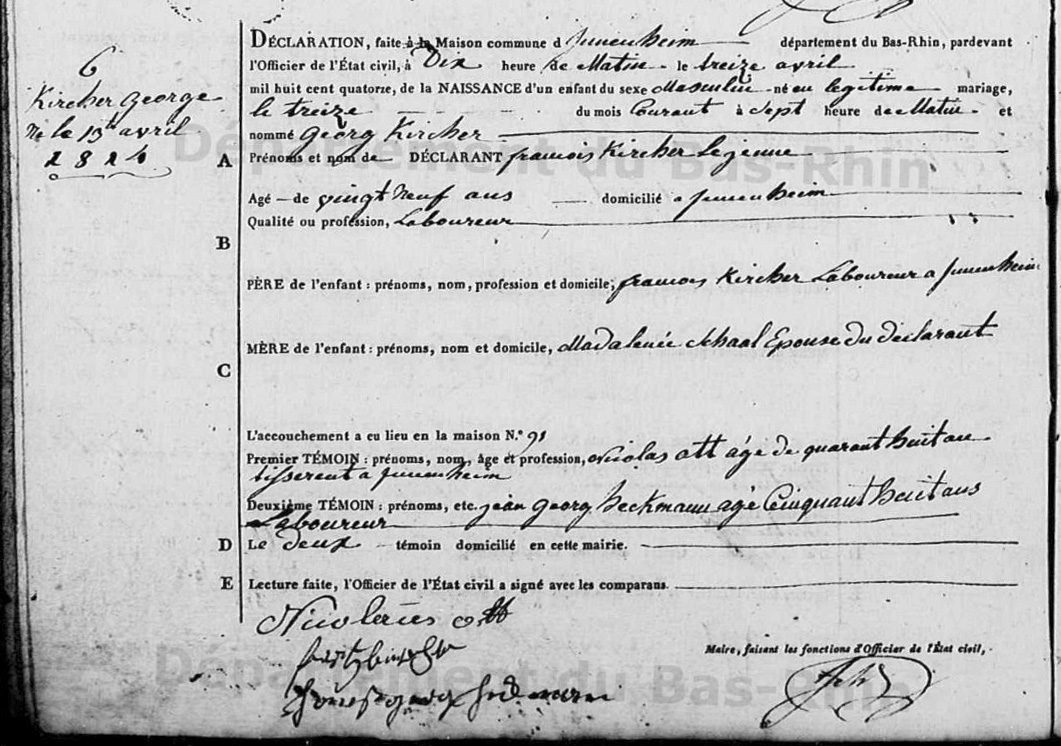 6
Kircher George
Né le 13 avril
1814
DÉCLARATION, faite à la Maison commune d département du Bas-Rhin, pardevant
l'Officier de l'État civil, à Dix heure de Matin le treize avril
mil huit cent quatorze, de la NAISSANCE d'un enfant du sexe Masculin né en legitime mariage,
le treize du mois Courant à Sept heure de Matin et
nommé Georg Kircher
A Prénoms et nom de DÉCLARANT francois Kircher le jenne
Agé de vingt Neuf ans domicilié a
Qualité ou profession, Laboureur
B
PÈRE de l'enfant : prénoms, nom, profession et domicile, francois Kircher Laboureur a
MÈRE de l'enfant : prénoms, nom et domicile, Schaal Epouse du declarant
C
L'accouchement a eu lieu en la maison N.º 91
Premier TÉMOIN : prénoms, nom, âge et profession, Nicolas ott agé de quarant huit an
tisserent a
Deuxième TÉMOIN : prénoms, etc. jean Georg heckmann agé Cinquant huit ans
Laboureur
D Le deux témoin domicilié en cette mairie.
E Lecture faite, l'Officier de l'État civil a signé avec les comparans.
ott
Maire, faisant les fonctions d'Officier de l'État civil,
Département du Bas-Rhin
Département du Bas-Rhin